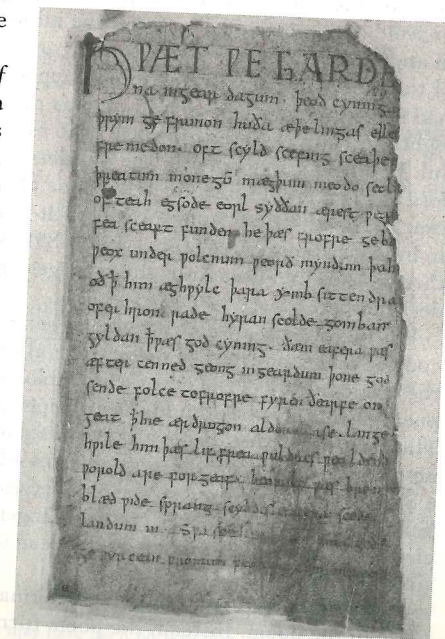 e
f
a
s
HǷÆT ǷE GARDE
na ingear dagum. þeod cyning
þrym ge frunon huða æþelingas elle
fremedon. oft scyld scefing sceaþe
þreatum monegū mægþum meodo setl
of teah egsode eorl syððan ærest ƿear
fea sceaft funden he þæs frofre geba
ƿeox under ƿolcnum ƿeorð myndum þah
oð ꝥ him æghƿylc þara ymb sittendra
ofer hron rade hyran scolde gomban
gyldan ꝥ ƿæs god cyning. ðæm eafera ƿæs
æfter cenned geong ingeardum þone god
sende folce tofrofre fyren ðearfe on
geat ꝥ hie ær drugon aldor ase. lange
hƿile him þæs lif frea ƿuldres ƿealdend
ƿorold are forgeaf. ƿæs breme
blæd ƿide sprang scyldes eafera scede
landum in. Sƿa
ge ƿyrcean fromum